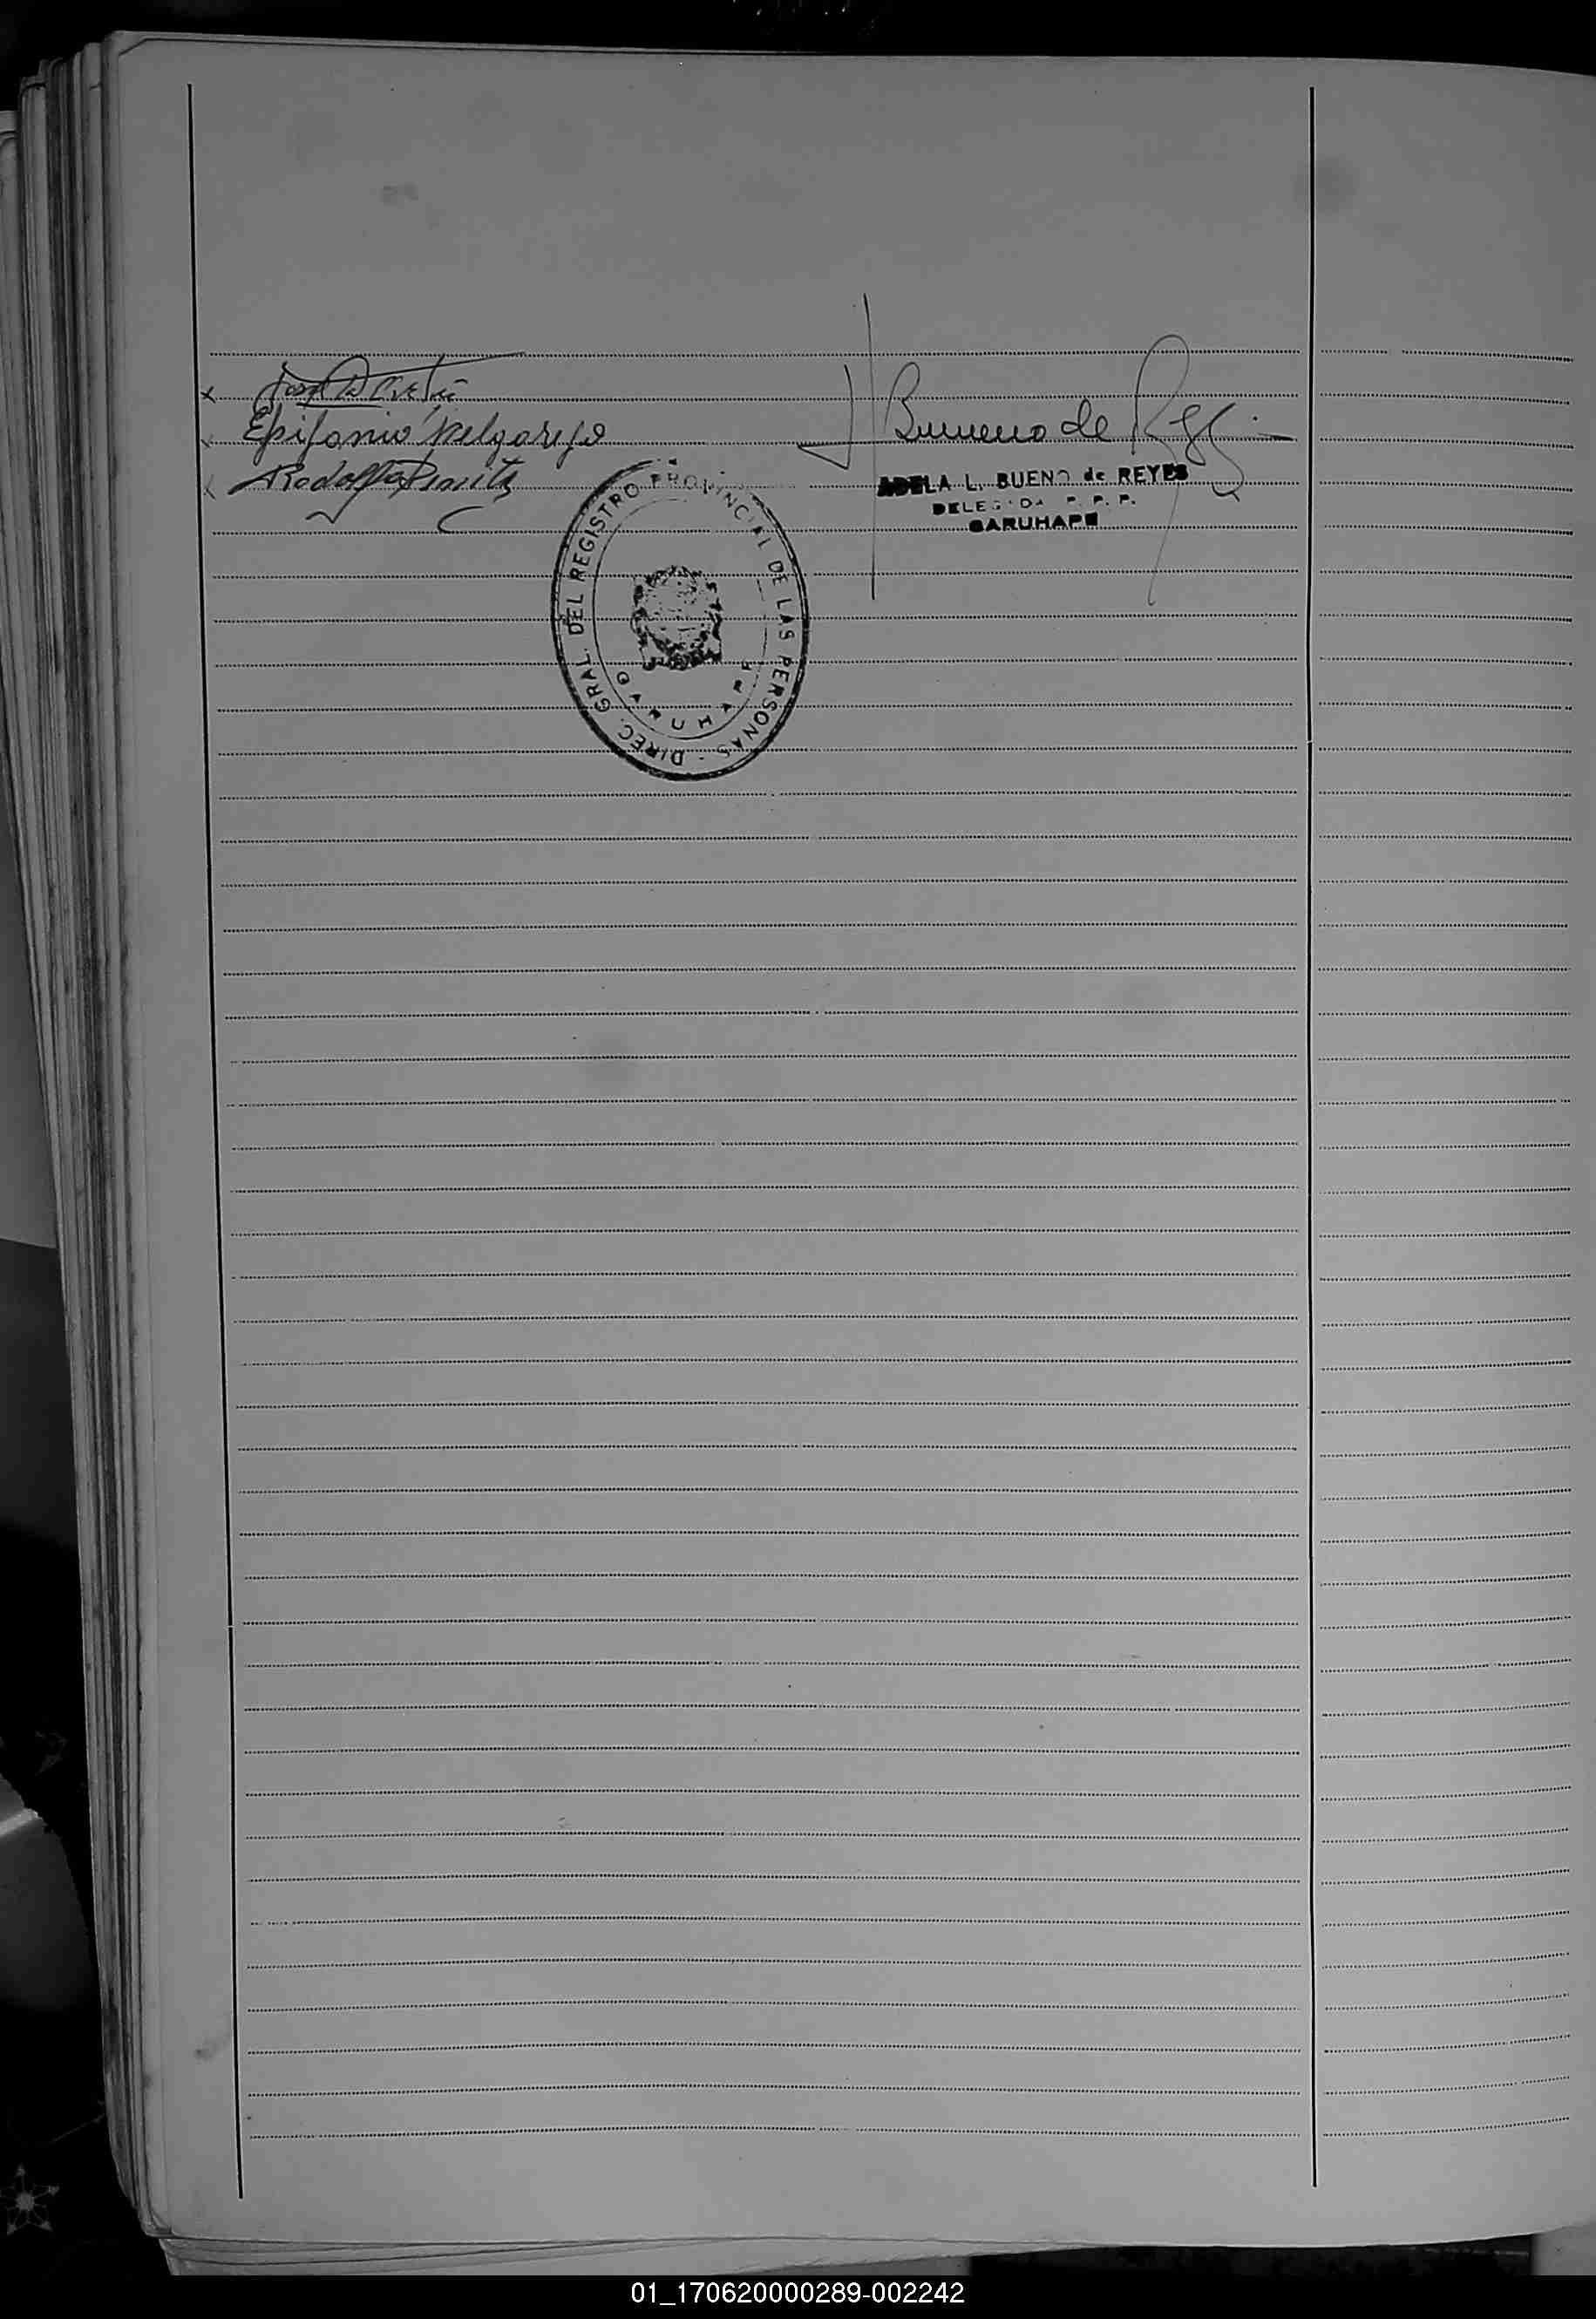 x
x Epifanio Melgarejo
x Rodolfo
Bueno de
ADELA L. BUENO de REYES
DELEGADA R. P. P.
GARUHAPE
DIREC. GRAL. DEL REGISTRO PROVINCIAL DE LAS PERSONAS -
GARUHAPE
01_170620000289-002242